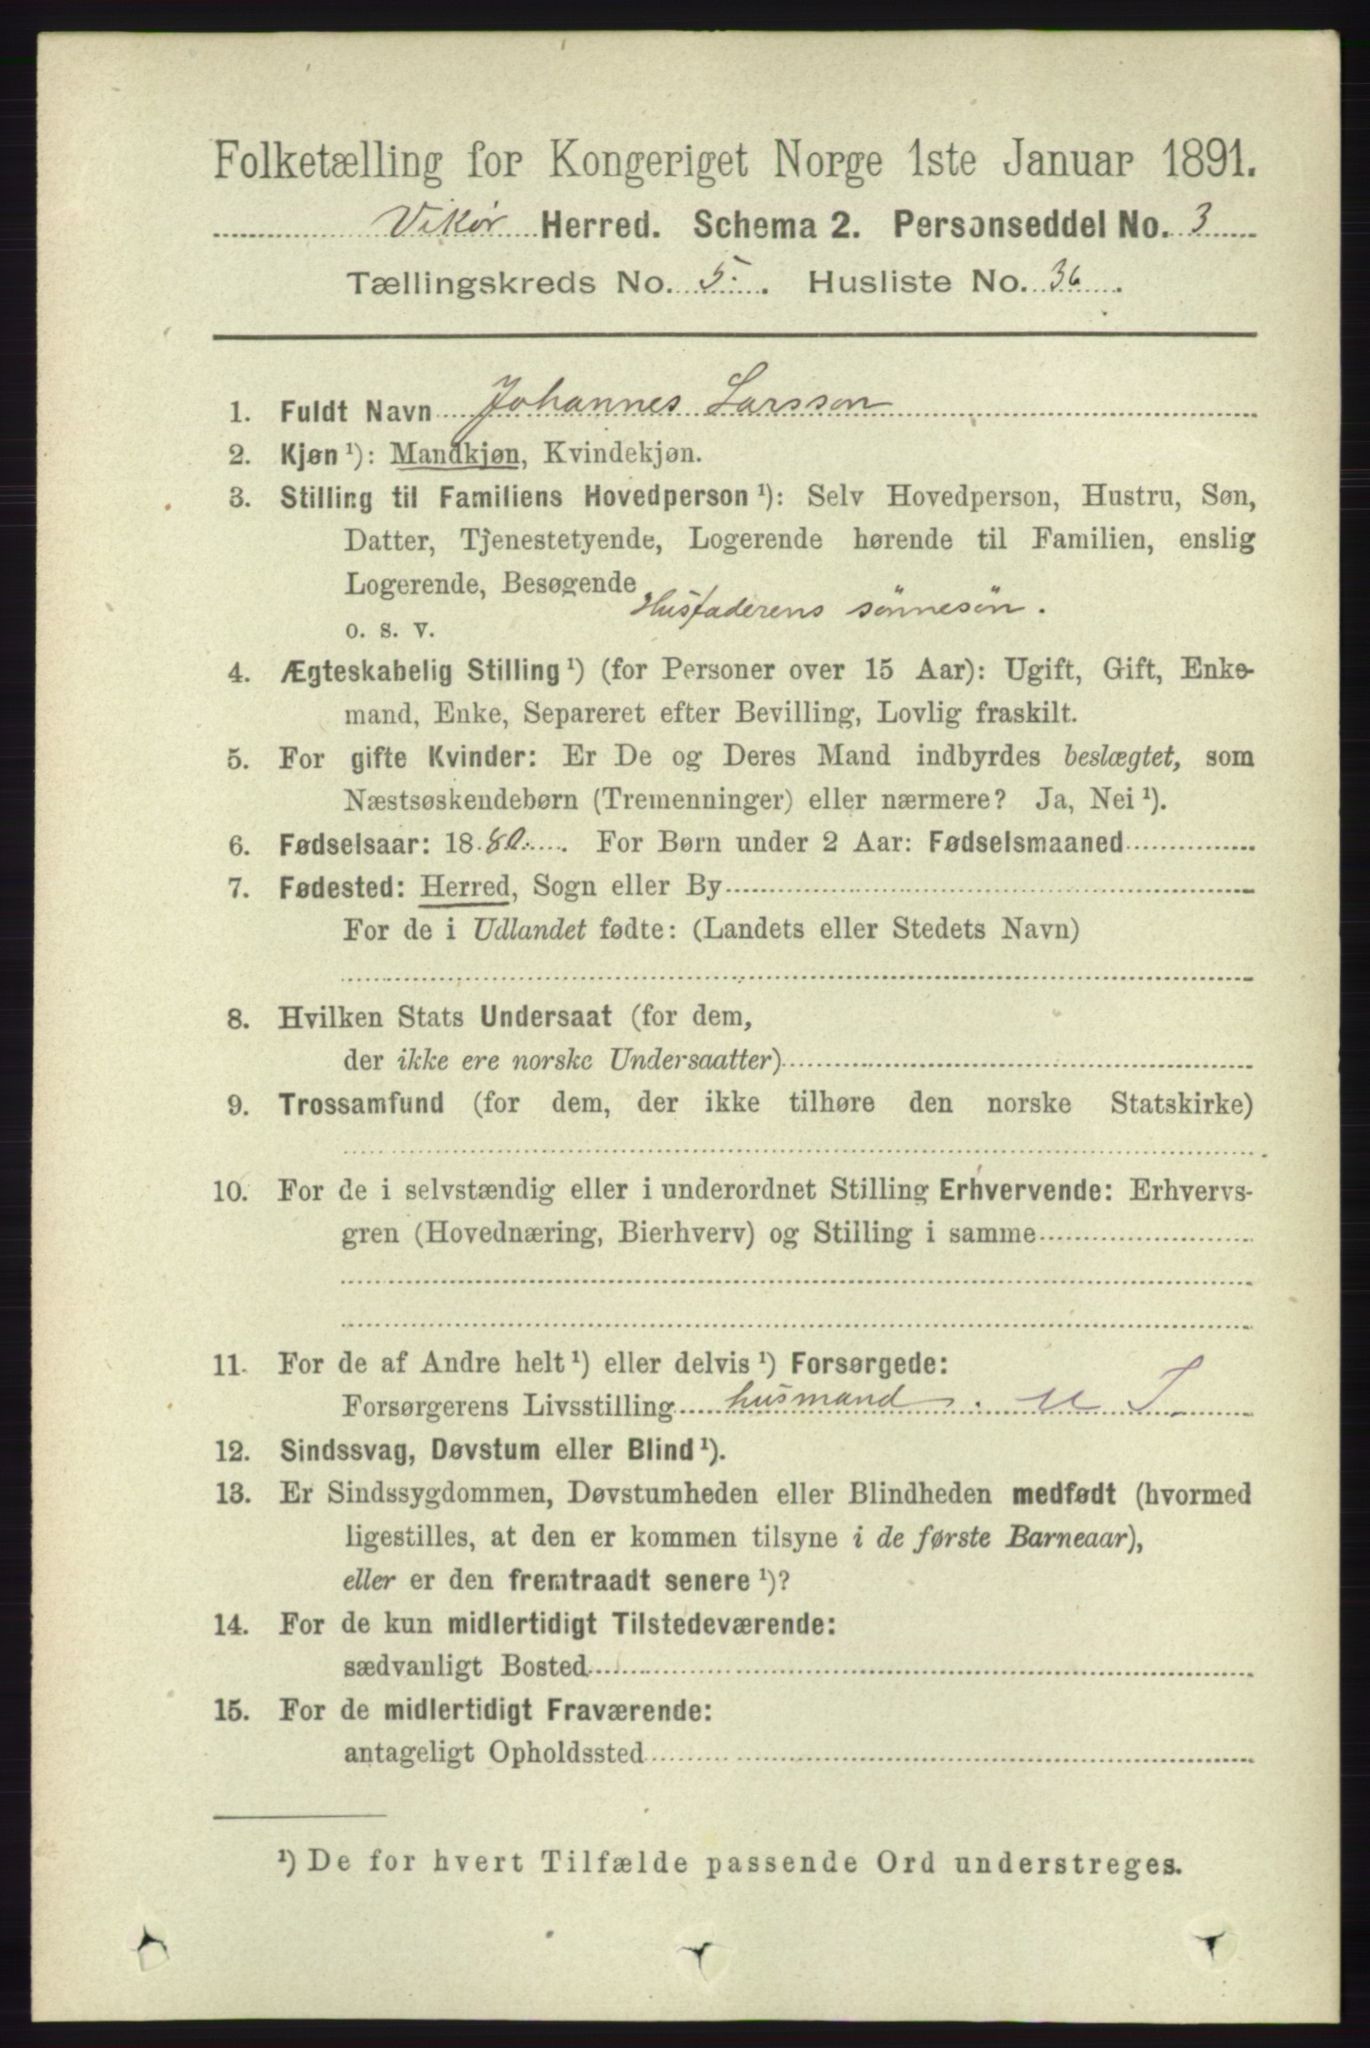 Folketælling for Kongeriget Norge 1ste Januar 1891.
Vikør Herred. Schema 2. Personseddel No. 3
Tællingskreds No. 5. Husliste No. 36.
1. Fuldt Navn Johannes Larsson
2. Kjøn ¹): Mandkjøn, Kvindekjøn.
3. Stilling til Familiens Hovedperson ¹): Selv Hovedperson, Hustru, Søn,
Datter, Tjenestetyende, Logerende hørende til Familien, enslig
Logerende, Besøgende
o. s. v. Husfaderens sønnesøn.
4. Ægteskabelig Stilling ¹) (for Personer over 15 Aar): Ugift, Gift, Enke-
mand, Enke, Separeret efter Bevilling, Lovlig fraskilt.
5. For gifte Kvinder: Er De og Deres Mand indbyrdes beslægtet, som
Næstsøskendebørn (Tremenninger) eller nærmere? Ja, Nei ¹).
6. Fødselsaar: 1880. For Børn under 2 Aar: Fødselsmaaned
7. Fødested: Herred, Sogn eller By
For de i Udlandet fødte: (Landets eller Stedets Navn)
8. Hvilken Stats Undersaat (for dem,
der ikke ere norske Undersaatter)
9. Trossamfund (for dem, der ikke tilhøre den norske Statskirke)
10. For de i selvstændig eller i underordnet Stilling Erhvervende: Erhvervs-
gren (Hovednæring, Bierhverv) og Stilling i samme
11. For de af Andre helt ¹) eller delvis ¹) Forsørgede:
Forsørgerens Livsstilling husmand. m J.
12. Sindssvag, Døvstum eller Blind ¹).
13. Er Sindssygdommen, Døvstumheden eller Blindheden medfødt (hvormed
ligestilles, at den er kommen tilsyne i de første Barneaar),
eller er den fremtraadt senere ¹)?
14. For de kun midlertidigt Tilstedeværende:
sædvanligt Bosted
15. For de midlertidigt Fraværende:
antageligt Opholdssted
¹) De for hvert Tilfælde passende Ord understreges.